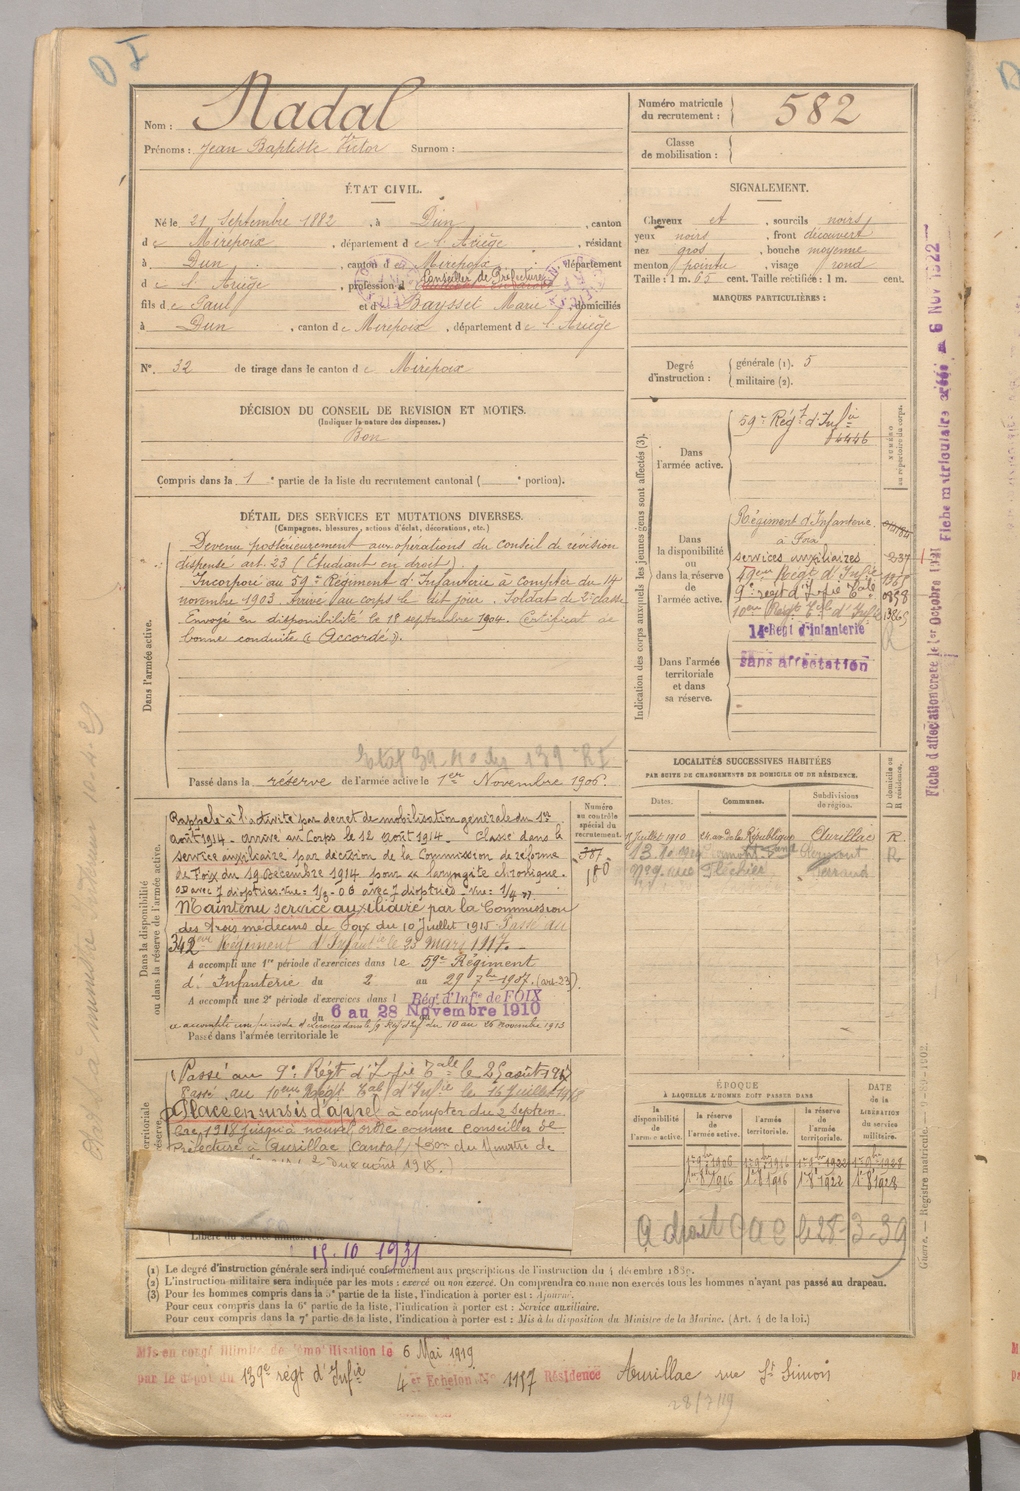 D I
Nom : Nadal
Prénoms : Jean Baptiste Victor Surnom :
Numéro matricule du recrutement : 582
Classe de mobilisation :
ÉTAT CIVIL.
Né le 21 Septembre 1882, à Dun, canton
de Mirepoix, département de l'Ariège, résidant
à Dun, canton de Mirepoix, département
de l'Ariège, profession d Conseiller de Préfecture
fils de Paul et de Baysset Marie, domiciliés
à Dun, canton de Mirepoix, département de l'Ariège
N° 32 de tirage dans le canton de Mirepoix
SIGNALEMENT.
Cheveux et, sourcils noirs
yeux noirs, front découvert
nez gros, bouche moyenne
menton pointu, visage rond
Taille : 1 m. 65 cent. Taille rectifiée : 1 m. cent.
MARQUES PARTICULIÈRES :
Degré d'instruction : générale (1). 5
militaire (2).
DÉCISION DU CONSEIL DE REVISION ET MOTIFS.
(Indiquer la nature des dispenses.)
Bon
Compris dans la 1e partie de la liste du recrutement cantonal ( e portion).
DÉTAIL DES SERVICES ET MUTATIONS DIVERSES.
(Campagnes, blessures, actions d'éclat, décorations, etc.)
Dans l'armée active.
Devenu postérieurement aux opérations du conseil de révision
dispensé art. 23 (Étudiant en droit).
Incorporé au 59e Régiment d'Infanterie à compter du 14
novembre 1903. Arrivé au corps le dit jour. Soldat de 2e classe
Envoyé en disponibilité le 18 septembre 1904. Certificat de
bonne conduite « Accordé ».
Passé dans la réserve de l'armée active le 1er Novembre 1906.
Indication des corps auxquels les jeunes gens sont affectés (3).
NUMÉRO au répertoire du corps.
Dans l'armée active.
59e Régt d'Infie
Dans la disponibilité ou dans la réserve de l'armée active.
Régiment d'Infanterie
à Foix
services auxiliaires 237
49em Regt d'Infie
9e regt d'Infie Tale
10em Regt Tal d'Infie
14e Régt d'Infanterie
sans affectation
Dans l'armée territoriale et dans sa réserve.
Fiche d'affectation créée le 1er Octobre 1921
Fiche matriculaire créée le 6 NOV 1922
LOCALITÉS SUCCESSIVES HABITÉES
PAR SUITE DE CHANGEMENTS DE DOMICILE OU DE RÉSIDENCE.
Dates. Communes. Subdivisions de région. D domicile ou R résidence.
Juillet 1910 av. de la République Aurillac R
Dans la disponibilité ou dans la réserve de l'armée active.
Numéro au contrôle spécial du recrutement.
387
180
Rappelé à l'activité par décret de mobilisation générale du 1er
août 1914. arrivé au Corps le 12 août 1914. Classé dans le
service auxiliaire par décision de la Commission de réforme
de Foix du 19 Décembre 1914 pour « laryngite chronique.
OD avec 7 dioptries vue = 1/3 - OG avec 7 dioptries vue = 1/4 »
Maintenu service auxiliaire par la Commission
des trois médecins de Foix du 10 Juillet 1915 Passé au
342em Régiment d'Infantie le 23 mars 1917.
A accompli une 1re période d'exercices dans le 59e Régiment
d'Infanterie du 2 au 29 7bre 1907. (art. 23).
A accompli une 2e période d'exercices dans l Rég. d'Infie de FOIX
du 6 au 28 Novembre 1910
du 10 au 26 novembre 1913
Passé dans l'armée territoriale le
Passé au 9e Régt d'Infie Tale le 25 août 1917
Passé au 10em Régt Tal d'Infie le 16 Juillet 1918
Placé en sursis d'appel à compter du 2 Septem-
bre 1918 jusqu'à nouvel ordre comme Conseiller de
Préfecture à Aurillac Cantal
août 1918.)
15.10 1931
ÉPOQUE
À LAQUELLE L'HOMME DOIT PASSER DANS
la disponibilité de l'armée active. la réserve de l'armée active. l'armée territoriale. la réserve de l'armée territoriale.
DATE de la LIBÉRATION du service militaire.
A droit CAC le 28-3-39
Guerre. — Registre matricule.
(1) Le degré d'instruction générale sera indiqué conformément aux prescriptions de l'instruction du 4 décembre 1889.
(2) L'instruction militaire sera indiquée par les mots : exercé ou non exercé. On comprendra comme non exercés tous les hommes n'ayant pas passé au drapeau.
(3) Pour les hommes compris dans la 5e partie de la liste, l'indication à porter est : Ajourné.
Pour ceux compris dans la 6e partie de la liste, l'indication à porter est : Service auxiliaire.
Pour ceux compris dans la 7e partie de la liste, l'indication à porter est : Mis à la disposition du Ministre de la Marine. (Art. 4 de la loi.)
Mis en congé illimité de démobilisation le 6 Mai 1919
par le dépôt du 139e régt d'Infie 4e Echelon N° 1157 Résidence Aurillac rue St Simon
28/7/19